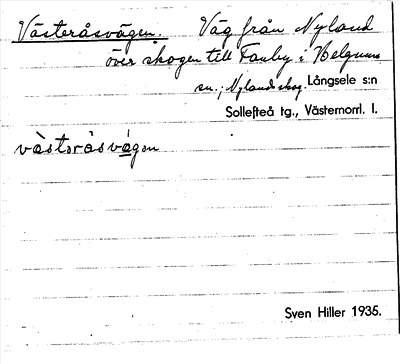 Västeråsvägen. Väg från Nyland
över skogen till Fanby i Helgums
sn.; Nylands skog. Långsele s:n
Sollefteå tg., Västernorrl. l.
västəråsvägən
Sven Hiller 1935.